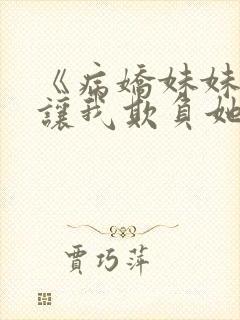 《病嬌妹妹
讓我欺負她
賈巧萍